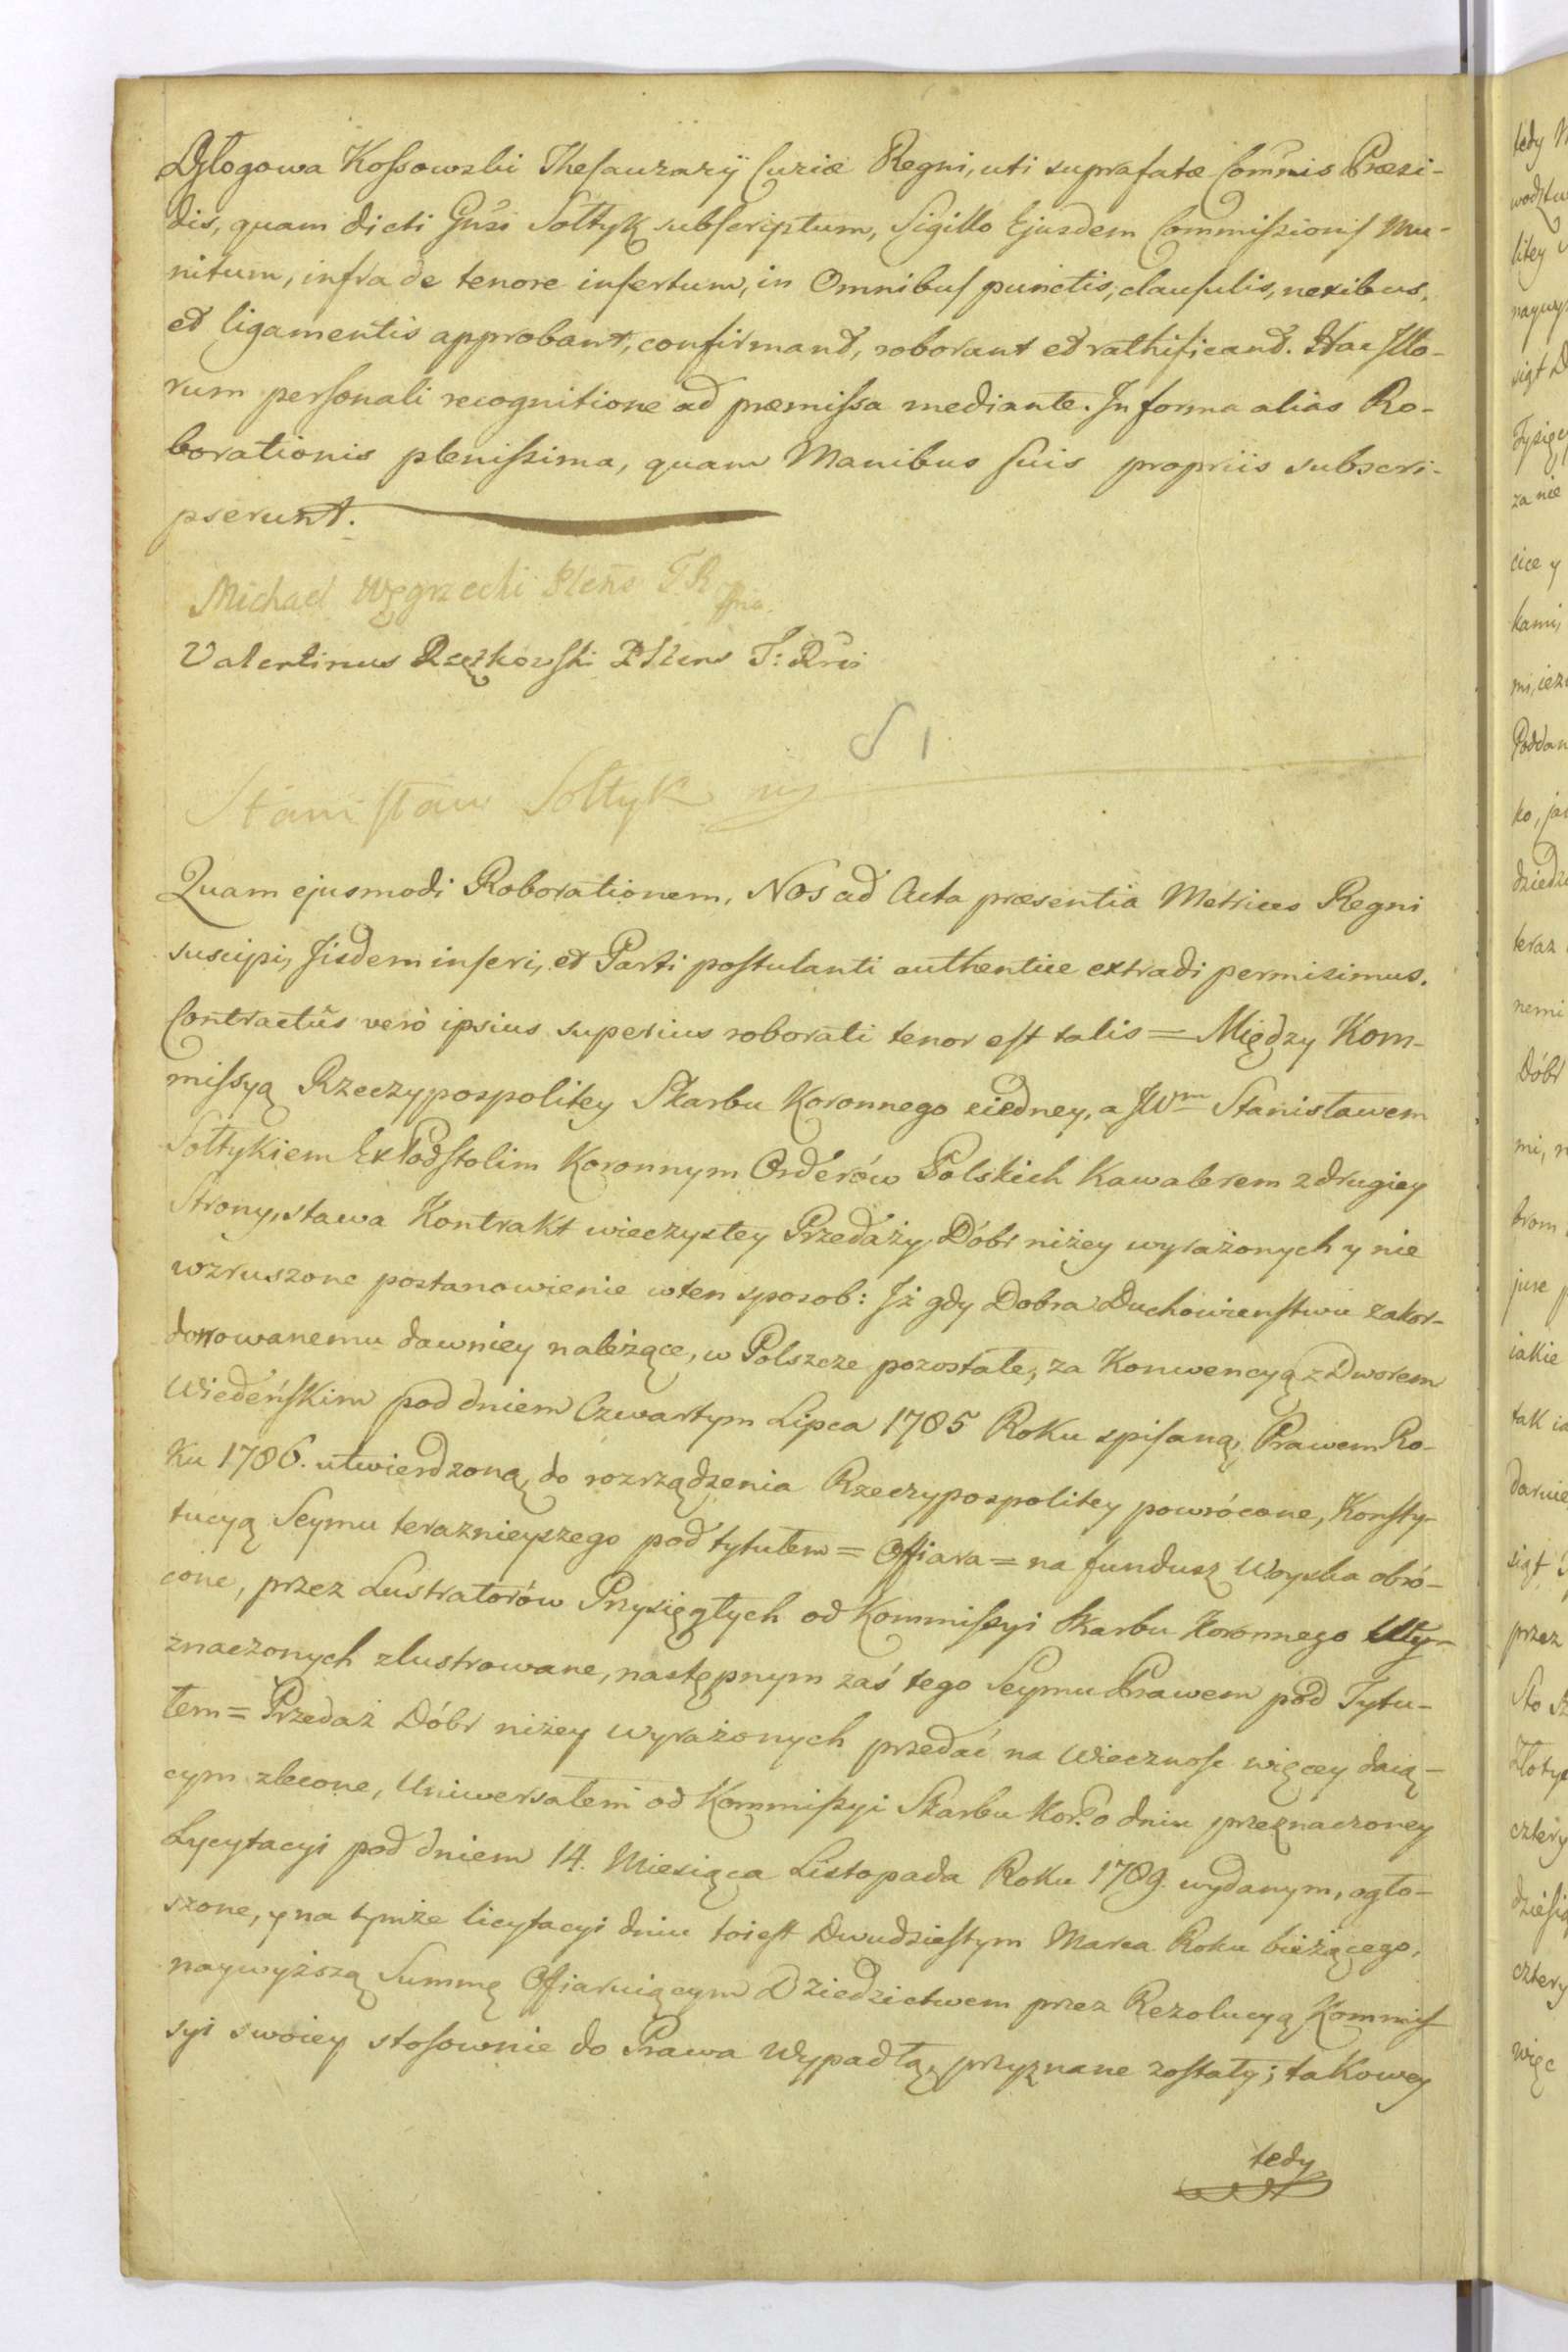 DGłogowa Kossowski Thesaurarij Curiæ Regni, uti suprafatæ Com̃nis Præsi-
dis, quam dicti Gñsi Sołtyk subscriptum, Sigillo Ejusdem Commissionis Mu-
nitum, infra de tenore insertum, in Omnibus punctis, clausulis, nexibus,
et ligamentis approbant, confirmant, roborant et rathificant. Hac Illo-
rum personali recognitione ad præmissa mediante. In forma alias Ro-
borationis plenissima, quam Manibus suis propriis subscri-
pserunt.
Michael Węgrzecki
Valentinus Rzężkowski
Stanisław Sołtyk
Quam ejusmodi Roborationem, Nos ad Acta præsentia Metrices Regni
suscipi, Iisdem inseri, et Parti postulanti authentice extradi permisimus.
Contractûs verò ipsius superius roborati tenor est talis = Między Kom-
missyą Rzeczypospolitey Skarbu Koronnego ziedney, a JWm Stanisławem
Sołtykiem Ex Podstolim Koronnym Orderów Polskich Kawalerem z drugiey
Strony, stawa Kontrakt wieczystey Przedaży Dóbr niżey wyrażonych y nie
wzruszone postanowienie w ten sposob: Iż gdy Dobra Duchowieństwu zakor-
donowanemu dawniey należące, w Polszcze pozostałe, za Konwencyą z Dworem
Wiedeńskim pod dniem Czwartym Lipca 1785 Roku spisaną, Prawem Ro-
ku 1786. utwierdzoną, do rozrządzenia Rzeczypospolitey powrócone, Konsty-
tucyą Seymu teraznieyszego pod tytułem = Ofiara = na fundusz Woyska obró-
cone, przez Lustratorów Przysięgłych od Kommissyi Skarbu Koronnego Wy-
znaczonych zlustrowane, następnym zaś tego Seymu Prawem pod Tytu-
łem = Przedaż Dóbr niżey wyrażonych przedać na Wieczność więcey daią-
cym zlecone, Uniwersałem od Kommissyi Skarbu Kor: o dniu przeznaczoney
Lycytacyi pod dniem 14. Miesiąca Listopada Roku 1789. wydanym, ogło-
szone, y na tymże licytacyi dniu toiest Dwudziestym Marca Roku bieżącego,
naywyższą Summę Ofiaruiącym Dziedzictwem przez Rezolucyą Kommis-
syi swoiey stosownie do Prawa Wypadłą, przyznane zostały; takowey
tedy